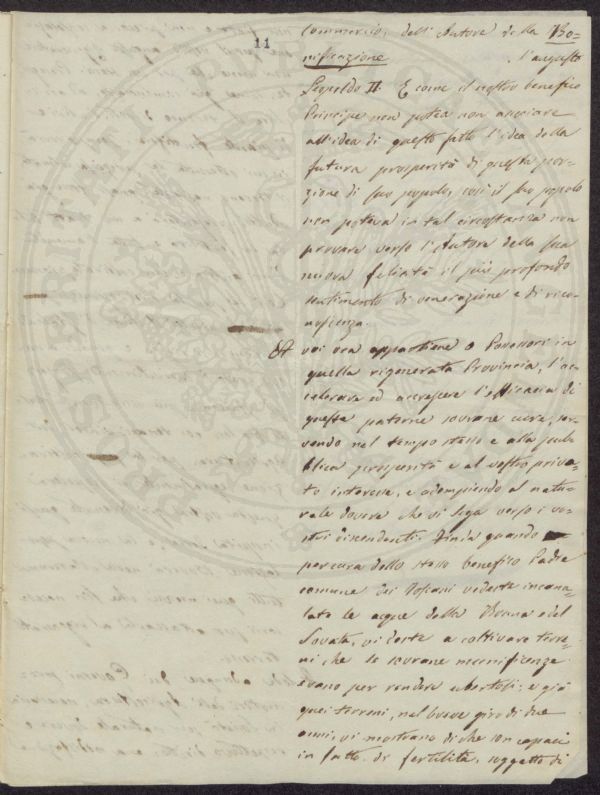 11
commercio, dell'Autore della Bo=
nificazione l'augusto
Leopoldo II. E come il nostro benefico
Principe non potea non associare
all'idea di questo fatto l'idea della
futura prosperità di questa por=
zione di suo popolo, così il suo popolo
non poteva in tal circostanza non
provare verso l'Autore della sua
nuova felicità il più profondo
sentimento di venerazione e di rico=
noscenza.
A voi ora appartiene o Possessori in
quella rigenerata Provincia, l'ac=
celerare ed accrescere l'efficacia di
queste paterne sovrane cure, ser=
vendo nel tempo stesso e alla pub=
blica prosperità e al vostro priva=
to interesse, e adempiendo al natu=
rale dovere che vi lega verso i vo=
stri discendenti. Finia quando
per cura dello stesso benefico Padre
comune dei Toscani vedeste incana=
late le acque della Bruna e del
Sovata, vi deste a coltivare terre=
ni che le sovrane necnificenze
erano per rendere ubertosi: e già
quei terreni, nel breve giro di due
anni, vi mostrano di che son capaci
in fatto di fertilità, soggetto di
PROSPERITATI